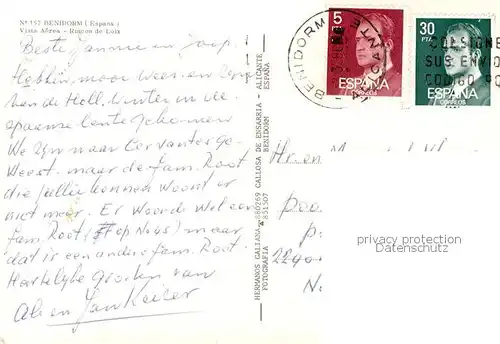 Nº 157 BENIDORM (España)
Vista Aérea - Rincón de Loix
Beste Jannie en Joop.
Hebben, maar weer een
van de Holl. winter in de
spaanse lente gekomen
We zijn naar Cervantes ge-
weest. maar de fam. Root
die jullie kennen woont er
niet meer. Er woond wel een
fam. Root (# op No 45) maar
dat is een andere fam. Root.
Hartelyke groeten van
Ali en Jan Keizer
HERMANOS GALIANA A 680269 CALLOSA DE ENSARRIA - ALICANTE
FOTOGRAFIA A 851307 BENIDORM ESPAÑA
BENIDORM
ALICANTE
5
PTA
ESPAÑA
CORREOS
30
PTA
ESPAÑA
CORREOS
CONSIGNE
SUS ENVIO
CODIGO PO
privacy protection
Datenschutz